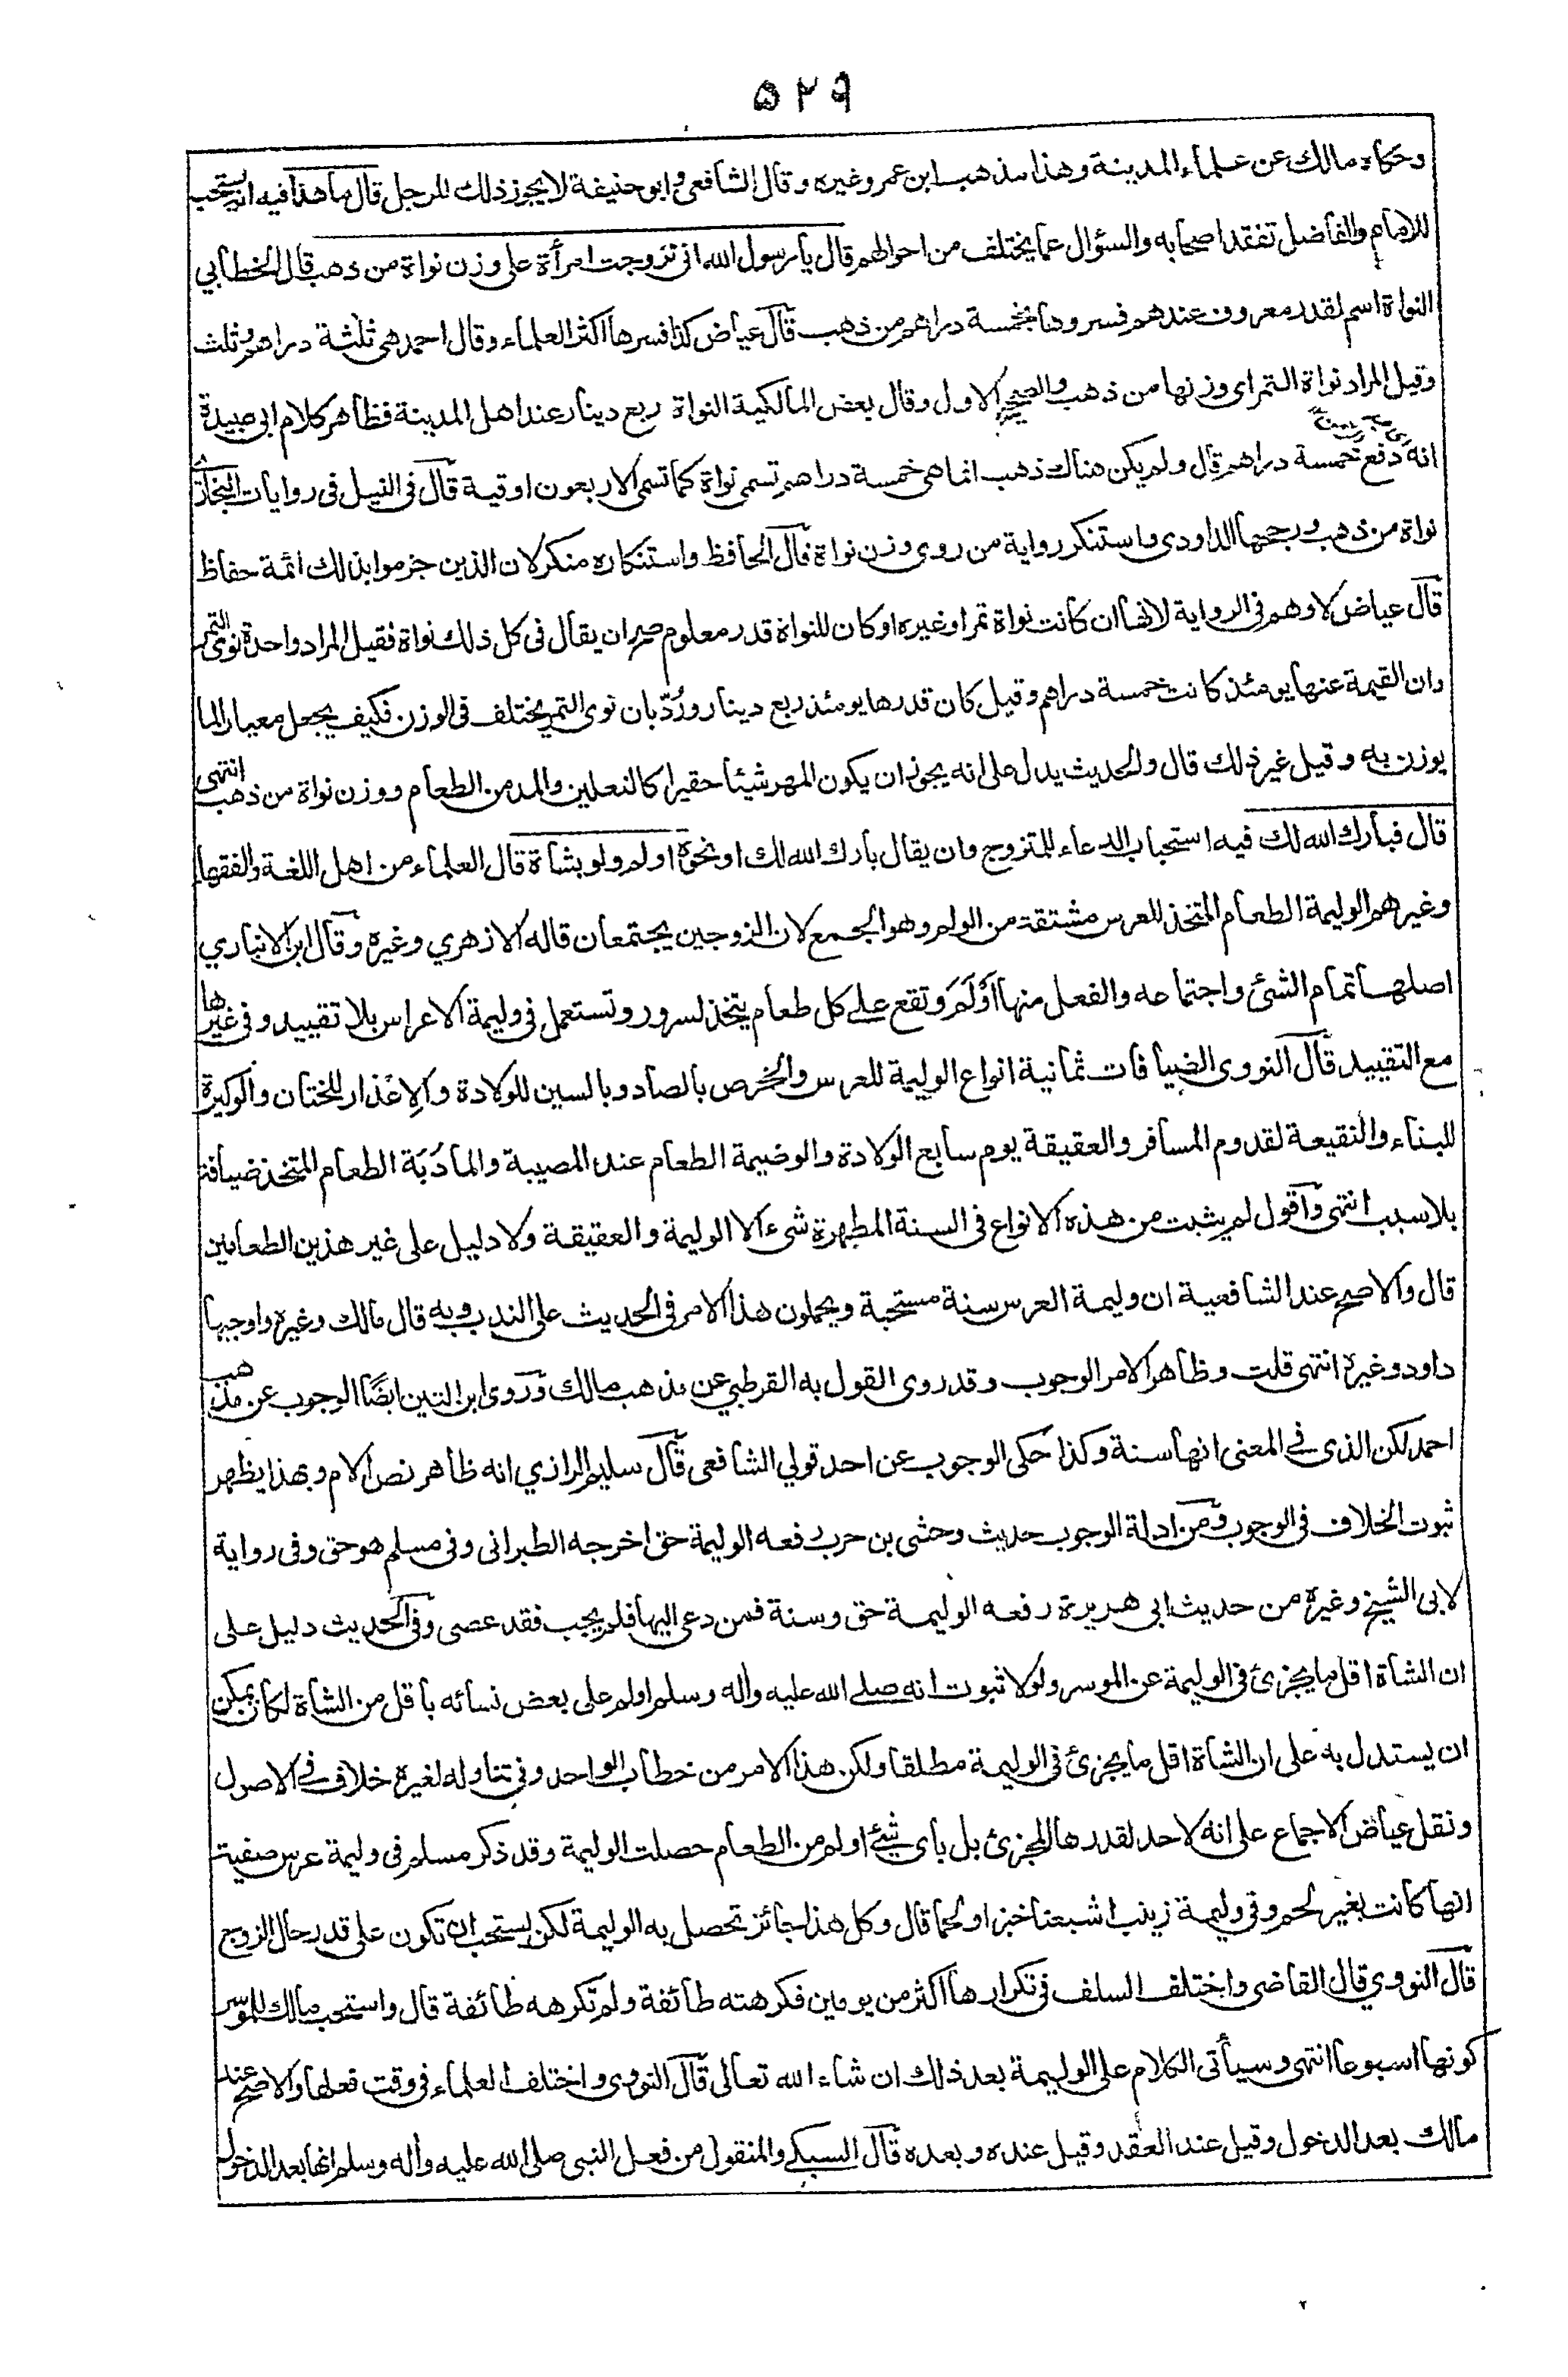 ۵۲۹
وحكاه مالك عن علماء المدينة وهذا مذهب ابن عمر وغيره وقال الشافعى وابو حنيفة لا يجوز ذلك للرجل قال ما هذا فيه انه يستحب
للامام والفاضل تفقد اصحابه والسؤال عما يختلف من احوالهم قال يا رسول الله انى تزوجت امرأة على وزن نواة من ذهب قال الخطابي
النواة اسم لقدر معروف عندهم فسروها بخمسة دراهم من ذهب قال عياض كذا فسرها اكثر العلماء وقال احمد هى ثلثة دراهم وثلث
وقيل المراد نواة التمر اى وزنها من ذهب والصحيح الاول وقال بعض المالكية النواة ربع دينار عند اهل المدينة فظاهر كلام ابى عبيدة
انه دفع خمسة دراهم قال ولم يكن هناك ذهب انما هى خمسة دراهم تسمى نواة كما تسمى الاربعون اوقية قال فى النيل فى روايات البخارى
نواة من ذهب ورجحها الداودى واستنكر رواية من روى وزن نواة قال الحافظ واستنكاره منكر لان الذين جزموا بذلك ائمة حفاظ
قال عياض لا وهم فى الرواية لانها ان كانت نواة تمر او غيره او كان للنواة قدر معلوم صح ان يقال فى كل ذلك نواة فقيل المراد واحدة نوى التمر
وان القيمة عنها يومئذ كانت خمسة دراهم وقيل كان قدرها يومئذ ربع دينار ورُدّ بان نوى التمر يختلف فى الوزن فكيف يجعل معيارا لما
يوزن به وقيل غير ذلك قال والحديث يدل على انه يجوز ان يكون المهر شيئا حقيرا كالنعلين والمد من الطعام ووزن نواة من ذهب انتهى
قال فبارك الله لك فيه استحباب الدعاء للمتزوج وان يقال بارك الله لك او نحوه اولم ولو بشاة قال العلماء من اهل اللغة والفقهاء
وغيرهم الوليمة الطعام المتخذ للعرس مشتقة من الولم وهو الجمع لان الزوجين يجتمعان قاله الازهري وغيره وقال ابن الانباري
اصلها تمام الشئ واجتماعه والفعل منها اَوْلَمَ وتقع على كل طعام يتخذ لسرور وتستعمل فى وليمة الاعراس بلا تقييد وفى غيرها
مع التقييد قال النووى الضيافات ثمانية انواع الوليمة للعرس والخرص بالصاد وبالسين للولادة والاِعْذار للختان والوكيرة
للبناء والنقيعة لقدوم المسافر والعقيقة يوم سابع الولادة والوضيمة الطعام عند المصيبة والمأدُبَة الطعام المتخذ ضيافة
بلا سبب انتهى واقول لم يثبت من هذه الانواع فى السنة المطهرة شىء الا الوليمة والعقيقة ولا دليل على غير هذين الطعامين
قال والاصح عند الشافعية ان وليمة العرس سنة مستحبة ويحملون هذا الامر فى الحديث على الندب وبه قال مالك وغيره واوجبها
داود وغيره انتهى قلت وظاهر الامر الوجوب وقد روى القول به القرطبي عن مذهب مالك وروى ابن التين ايضًا الوجوب عن مذهب
احمد لكن الذى في المغنى انها سنة وكذا حكى الوجوب عن احد قولي الشافعى قال سليم الرازي انه ظاهر نص الام وبهذا يظهر
ثبوت الخلاف فى الوجوب ومن ادلة الوجوب حديث وحشى بن حرب رفعه الوليمة حق اخرجه الطبرانى وفى مسلم هو حق وفى رواية
لابى الشيخ وغيره من حديث ابى هريرة رفعه الوليمة حق وسنة فمن دعى اليها فلم يجب فقد عصى وفى الحديث دليل على
ان الشاة اقل ما يجزئ فى الوليمة عن الموسر ولولا ثبوت انه صلى الله عليه وآله وسلم اولم على بعض نسائه باقل من الشاة لكان يمكن
ان يستدل به على ان الشاة اقل ما يجزئ فى الوليمة مطلقا ولكن هذا الامر من خطاب الواحد وفى تناوله لغيره خلاف في الاصول
ونقل عياض الاجماع على انه لا حد لقدرها المجزئ بل بأى شئ اولم من الطعام حصلت الوليمة وقد ذكر مسلم فى وليمة عرس صفية
انها كانت بغير لحم وفى وليمة زينب اشبعنا خبزا ولحما قال وكل هذا جائز تحصل به الوليمة لكن يستحب ان تكون على قدر حال الزوج
قال النووي قال القاضى واختلف السلف فى تكرارها اكثر من يومين فكرهته طائفة ولم تكرهه طائفة قال واستحب مالك للموسر
كونها اسبوعا انتهى وسيأتى الكلام على الوليمة بعد ذلك ان شاء الله تعالى قال النووى واختلف العلماء فى وقت فعلها والاصح عند
مالك بعد الدخول وقيل عند العقد وقيل عنده وبعده قال السبكي والمنقول من فعل النبى صلى الله عليه وآله وسلم انها بعد الدخول